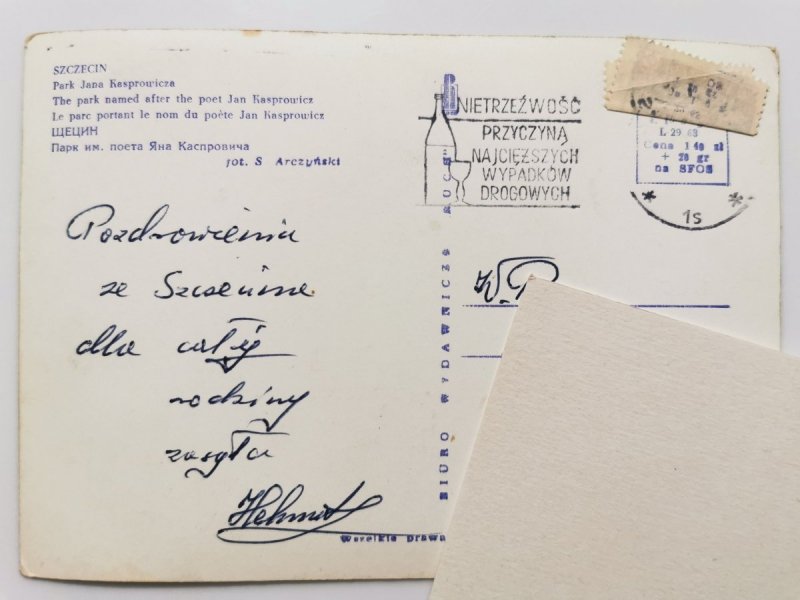 SZCZECIN
Park Jana Kasprowicza
The park named after the poet Jan Kasprowicz
Le parc portant le nom du poète Jan Kasprowicz
ЩЕЦИН
Парк им. поета Яна Каспровича
fot. S Arczyński
NIETRZEŹWOŚĆ
PRZYCZYNĄ
NAJCIĘŻSZYCH
WYPADKÓW
DROGOWYCH
L 29.63
Cena 1 40 zł
+ 20 gr
na SFOS
* 1s *
Pozdrowienia
ze Szczecina
dla całej
rodziny
zasyła
Helmut
BIURO WYDAWNICZE "RUCH"
W.P.
Wszelkie prawa